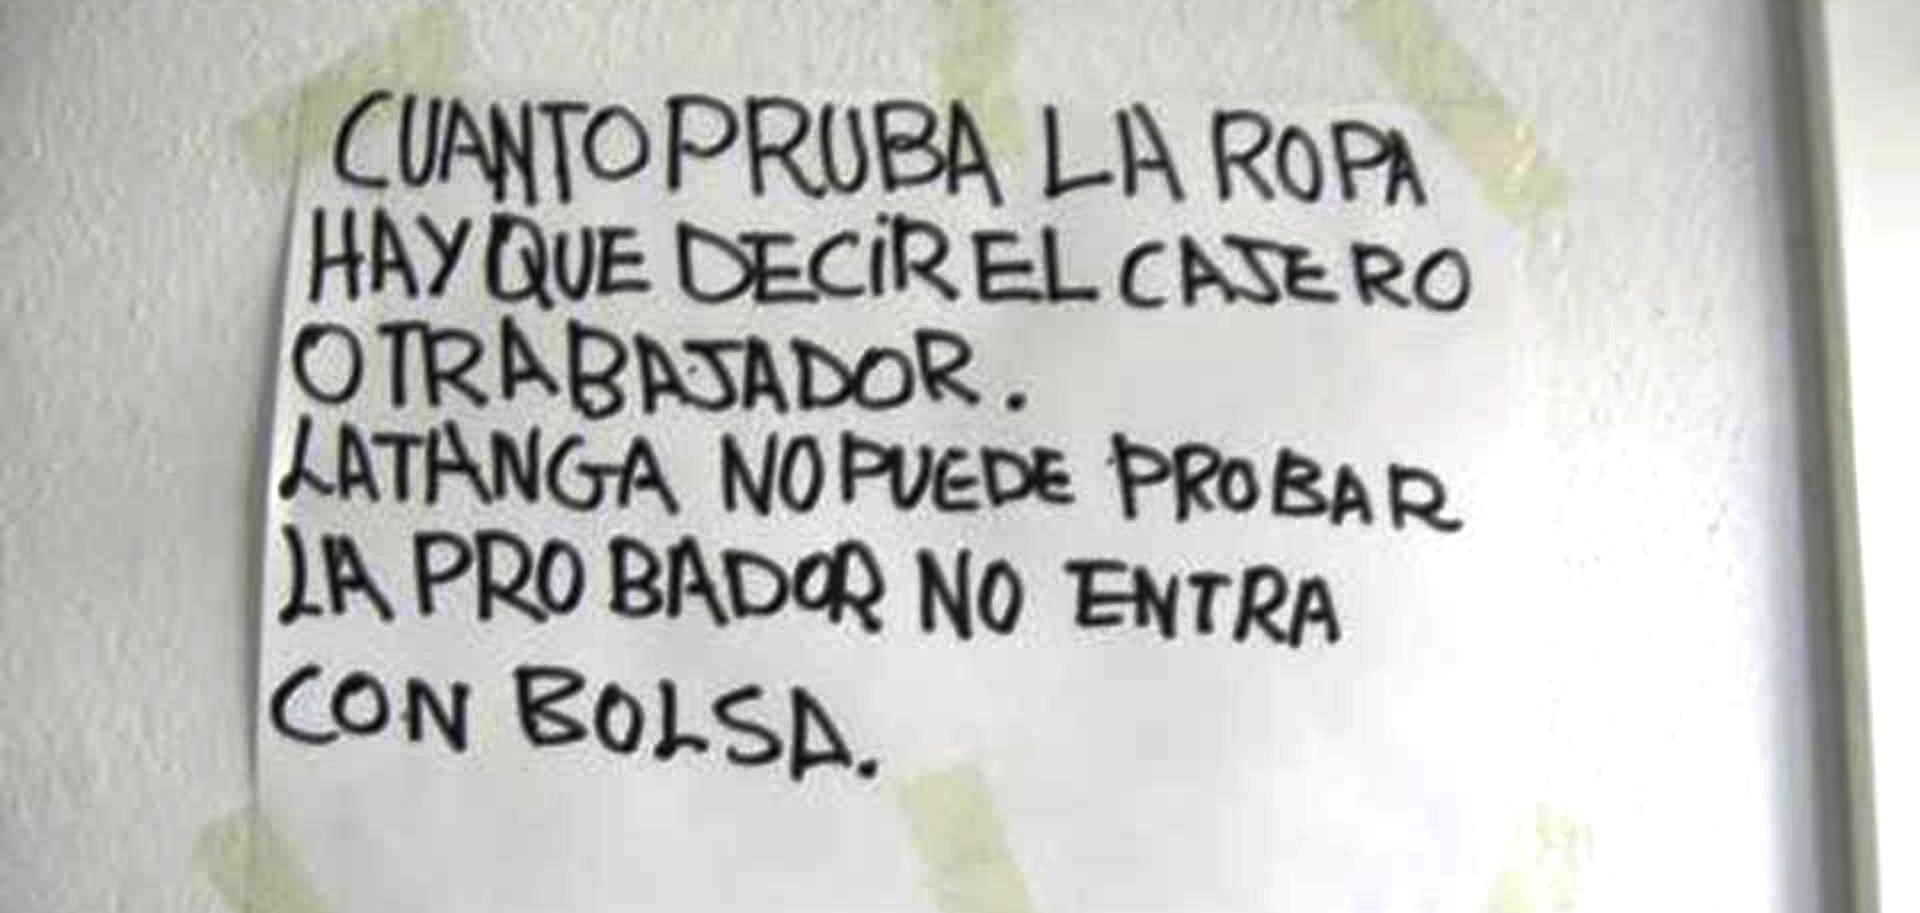 CUANTO PRUBA LA ROPA
HAY QUE DECIR EL CAJERO
O TRABAJADOR.
LA TANGA NO PUEDE PROBAR
LA PROBADOR NO ENTRA
CON BOLSA.